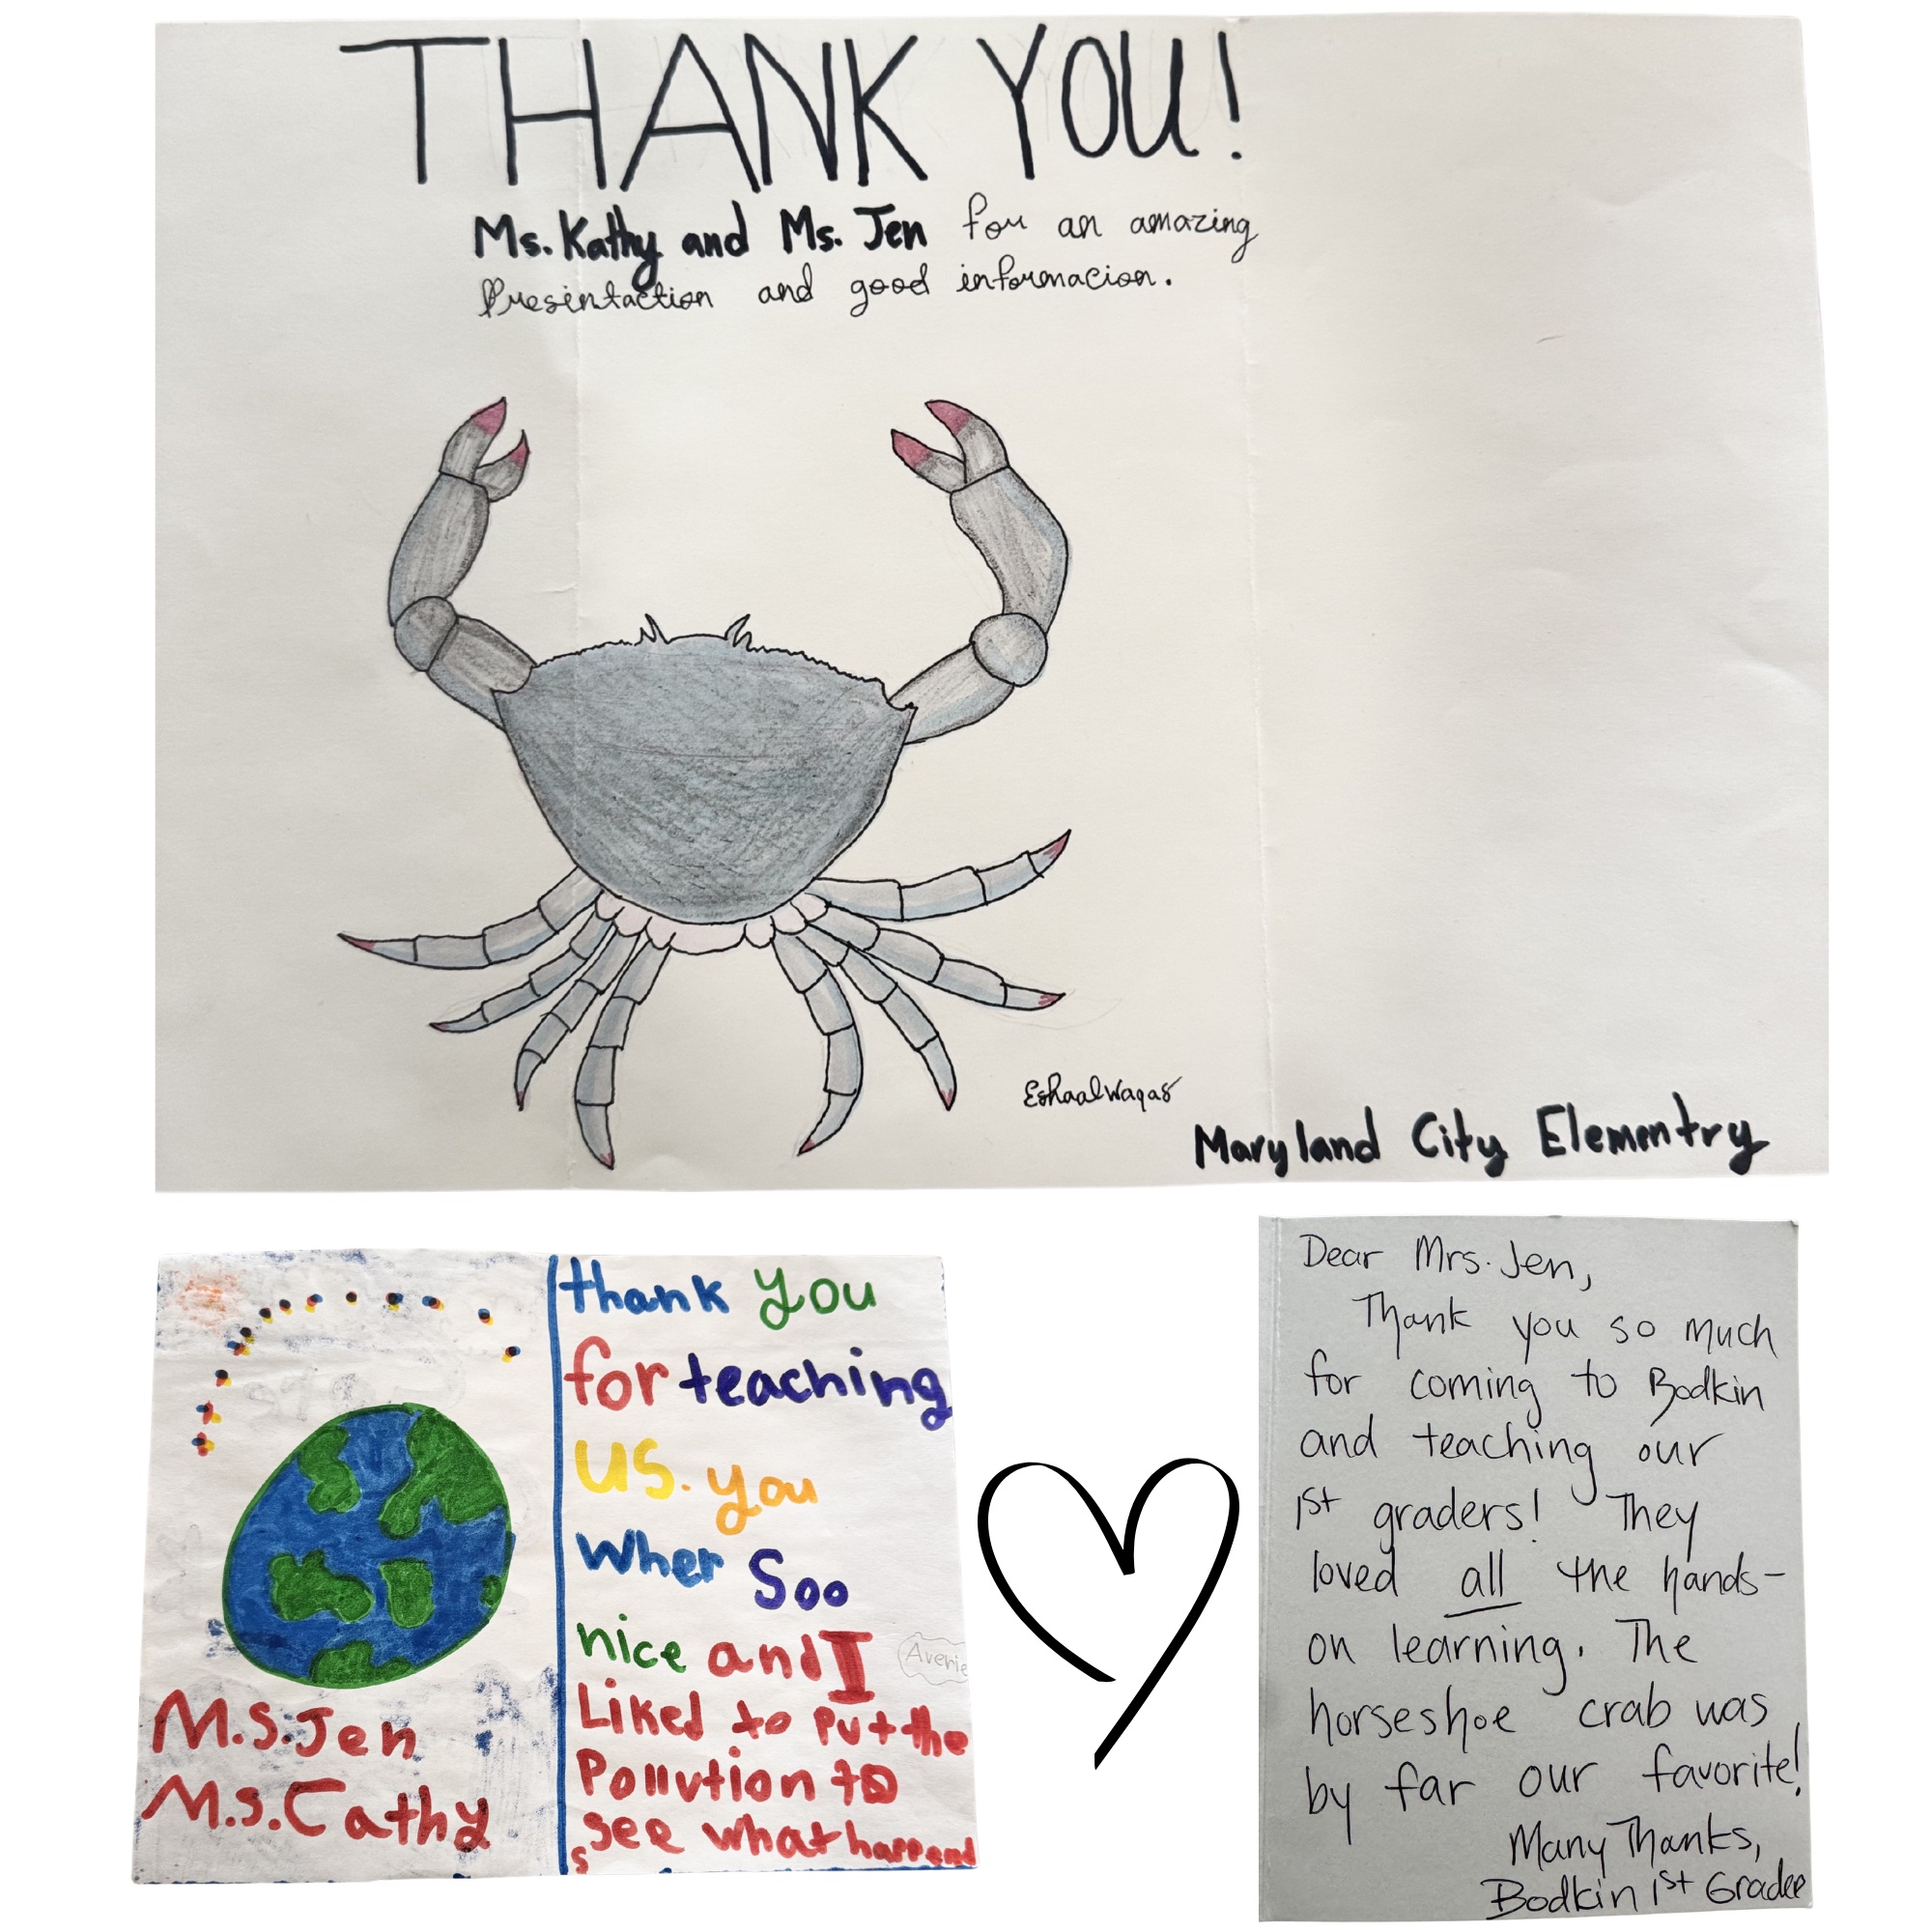 THANK YOU!
Ms. Kathy and Ms. Jen for an amazing
Presintaction and good informacion.
Eshaal Waqas
Maryland City Elementry
thank you
for teaching
us. you
wher Soo
nice and I
Averie
Liked to put the
Pollution to
see what happend
s
M.S. Jen
M.S. Cathy
Dear Mrs. Jen,
Thank you so much
for coming to Bodkin
and teaching our
1st graders! They
loved all the hands-
on learning. The
horseshoe crab was
by far our favorite!
Many Thanks,
Bodkin 1st Grade